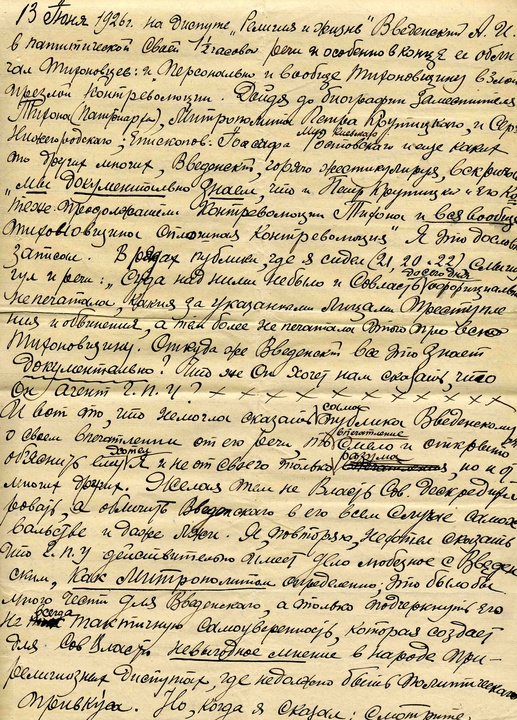 13 Июня 1926 г. на Диспуте „Религия и жизнь" Введенский А. И.
в патитической Своей 1½ часовой речи и особенно в конце ее обли
чал Тихоновцев: и Персонально и вообще Тихоновщину в злой
презлой контреволюции. Дойдя до биографии Заместителя
Тихона (Патриарха), Митрополита Петра Крутицкого, и Сергия
Нижегородского, Епископов: Иоасафа Ростовского и еще каких
то других многих, Введенский, горячо жестикулируя, вскрикнул
„мы Документально Знаем, что и Петр Крутицкий и его
тоже продолжатели Контреволюции Тихона и вся вообще
Тихоновщина Сплошная Контреволюция" Я это дословно
записал. В рядах публики, где я сидел (21, 20 и 22) Слышу
гул и речи: „Суда над ними небыло и Совласть до сего дня официально
непечатала, какия за указанными лицами Преступле
ния и обвинения, а тем более не печатала этого про всю
Тихоновщину. Откуда же Введенский все это Знает
Документально? Что же Он хочет нам сказать, что
Он агент Г. П. У?
И вот то, что немогла сказать сама публика Введенскому
о своем впечатлении от его речи, впечатление Смело и открыто
объяснить ему хотел Я и не от своего только разума, но и от
многих других. Желая тем не Власть Сов. Дескредити
ровать, а обличить Введенского в его всем Случае Само
вольстве и даже лжи. Я, повторяю, нехотел сказать
что Г. П. У действительно имеет дело любезное с Введен
ским, как Митрополитом определенно; это былобы
много чести для Введенского, а только подчеркнуть его
не всегда тактичную Самоуверенность, которая создает
для Сов Власти невыгодное мнение в народе при-
религиозных диспутах, где недолжно быть политическаго
привкуса. Но, когда я сказал: Смотрите,